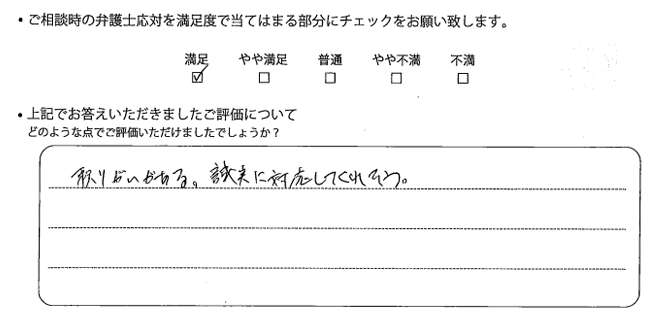 ・ご相談時の弁護士応対を満足度で当てはまる部分にチェックをお願い致します。
満足 やや満足 普通 やや不満 不満
☑ □ □ □ □
・上記でお答えいただきましたご評価について
どのような点でご評価いただけましたでしょうか？
頼りがいがある。誠実に対応してくれそう。